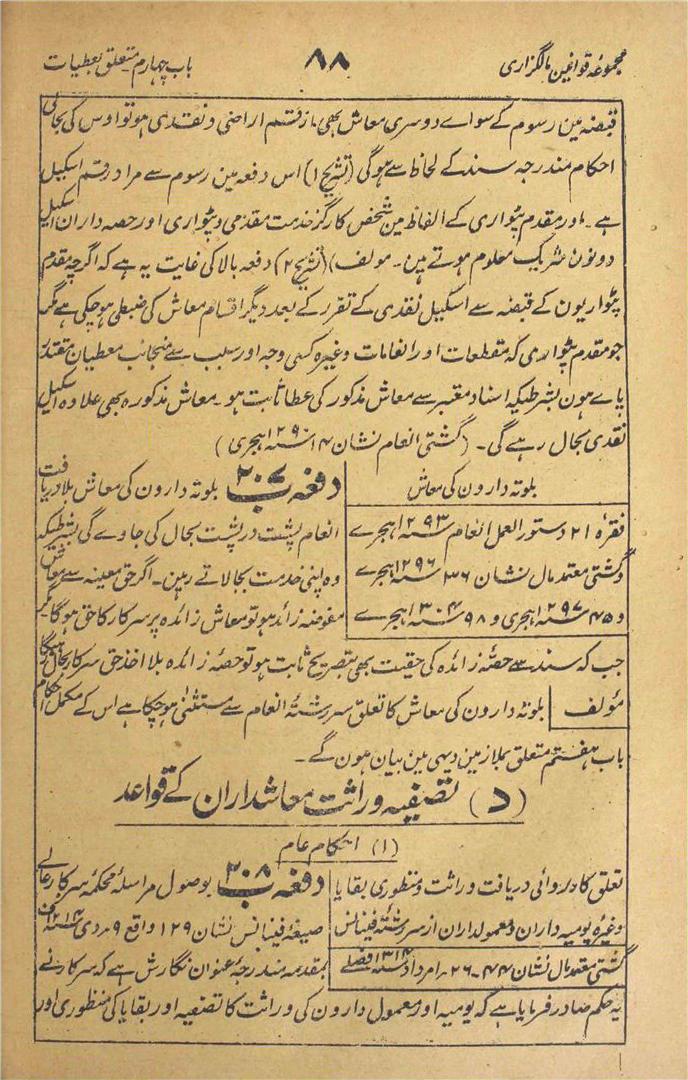 مجموعہ قوانین مالگزاری
۸۸
باب چہارم۔ متعلق بعطیات
قبضہ مین رسوم کے سواے دوسری معاش بھی از قسم اراضی و نقدی ہو تو اوس کی بحالی
احکام مندرجہ سند کے لحاظ سے ہوگی (تشریح ۱) اس دفعہ مین رسوم سے مراد رقم اسکیل
ہے۔ اور مقدم پٹواری کے الفاظ مین شخص کارگزخدمت مقدمی و پٹواری اور حصہ داران اسکیل
دونون شریک معلوم ہوتے ہین۔ مولف) (تشریح ۲) دفعہ بالا کی غایت یہ ہے کہ اگرچہ مقدم
پٹواریون کے قبضہ سے اسکیل نقدی کے تقرر کے بعد دیگر اقسام معاش کی ضبطی ہوچکی ہے مگر
جو مقدم پٹواری کہ مقطعات اور انعامات وغیرہ کسی وجہ اور سبب سے منجانب معطیان مقتدر
پاے ہون بشرطیکہ اسناد معتبر سے معاش مذکور کی عطا ثابت ہو۔ معاش مذکورہ بھی علاوہ اسکیل
نقدی بحال رہے گی۔ (گشتی انعام نشان ۱۴ سنہ ۱۲۹۰ ہجری)
بلوتہ دارون کی معاش
دفعہ ۲۰۷ ب بلوتہ دارون کی معاش بلا دریافت
فقرہ ۲۱ دستور العمل انعام سنہ ۱۲۹۳ ہجرے
انعام پشت در پشت بحال کی جاوے گی بشرطیکہ
و گشتی معتمد مال نشان ۳۶ سنہ ۱۲۹۶ ہجرے
وہ اپنی خدمت بجا لاتے رہین۔ اگر حق معینہ سے معاش
و ۴۵ سنہ ۱۲۹۷ ہجری و ۹۸ سنہ ۱۳۰۴ ہجرے
مفوضہ زائد ہو تو معاش زائدہ پر سرکار کا حق ہوگا۔ مگر
جب کہ سند سے حصہ زائدہ کی حقیت بھی بتصریح ثابت ہو تو حصہ زائدہ بلا اخذ حق سرکار بحال ہوگا
مؤلف بلوتہ دارون کی معاش کا تعلق سررشتۂ انعام سے مستثنیٰ ہوچکا ہے اس کے مکمل احکام
باب ہفتم متعلق بملازمین دیہی مین بیان ہون گے۔
(د) تصفیہ وراثت معاشداران کے قواعد
(۱) احکام عام
تعلق کارروائی دریافت وراثت و منظوری بقایا
دفعہ ۲۰۸ ب بوصول مراسلۂ محکمہ سرکار عالے
وغیرہ یومیہ داران و معمولداران از سررشتہ فینانس
صیغۂ فینانس نشان ۱۲۹ واقع ۹ ردی سنہ
گشتی معتمد مال نشان ۴۴۔ ۲۶ رامرداد سنہ ۱۳۱۴ فصلے
بمقدمہ مندرجۂ عنوان نگارش ہے کہ سرکار نے
یہ حکم صادر فرمایا ہے کہ یومیہ اور معمول دارون کی وراثت کا تصفیہ اور بقایا کی منظوری اور